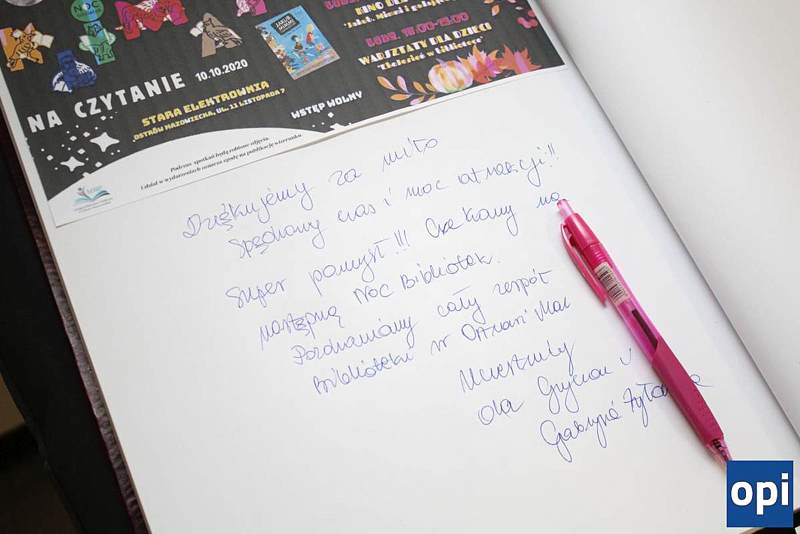 NOC
KLIMAT
NA CZYTANIE 10.10.2020
STARA ELEKTROWNIA
OSTRÓW MAZOWIECKA, UL. 11 LISTOPADA 7
WSTĘP WOLNY
KINO DLA
GODZ. 18:00-19:00
WARSZTATY DLA DZIECI
Podczas spotkań będą robione zdjęcia.
Udział w wydarzeniach oznacza zgodę na publikację wizerunku.
Dziękujemy za miło
spędzony czas i moc atrakcji!!
super pomysł!!! Czekamy na
następną Noc Bibliotek.
Pozdrawiamy cały zespół
Biblioteki w Ostrowi Maz
Uczestnicy
Ola
Gabrysia
opi